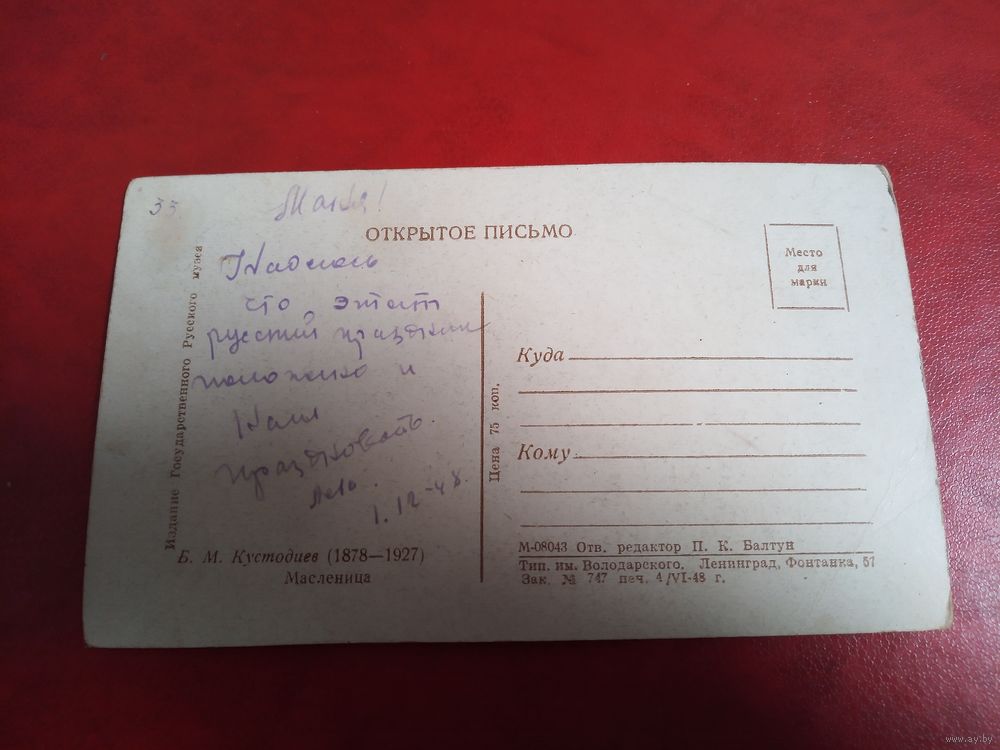 33
Маня!
ОТКРЫТОЕ ПИСЬМО
Надеюсь
что этот
русский праздник
положено и
Нам
праздновать.
1.12-48.
Издание Государственного Русского музея
Б. М. Кустодиев (1878—1927)
Масленица
Цена 75 коп.
Место
для
марки
Куда
Кому
М-08043 Отв. редактор П. К. Балтун
Тип. им. Володарского. Ленинград, Фонтанка, 57
Зак. № 747 печ. 4/VI-48 г.
www.ay.by